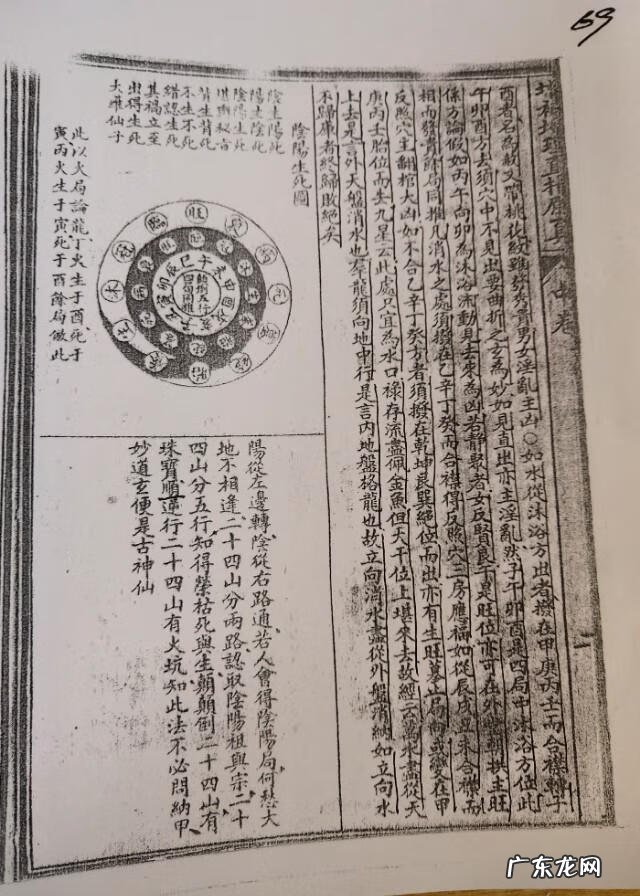 69
酉者名為敖又帶桃從紋雖發秀貴男女淫亂主凶〇如水從沐浴方出者撥在甲庚丙壬而合襟轉子
午卯酉方去須穴中不見出要曲折之玄為妙如見直出亦主淫亂然子午卯酉是四局中沐浴方位此
係方論假如丙午向卯為沐浴流動見去來為凶若靜聚者女反賢良于是旺位亦可在外特朝拱主旺
相而發貴除局同推凡消水之處須撥在乙辛丁癸而合襟得反照穴三房應福如從辰戌丑未合襟而
反照穴主翻棺大凶如不合乙辛丁癸方者須撥在乾坤艮巽絕位而出亦有生旺墓正局向或變在甲
庚丙壬胎位而去九星云此處只宜為水口祿存流盡佩金魚但天干位上堪來去故經云為水盡從天
上去是言外天盤消水也羣龍須向地中行是言內地盤格龍也故立向消水盡從外盤消納如立向水
不歸庫者終歸敗絕矣
陰陽生死圖
陰生陽死
陽生陰死
陰陽生死
堪輿秘言
皆生皆死
不生不死
錯認生死
其禍立至
出得生死
大雅仙子
旺
臨
冠
浴
生
養
胎
絕
墓
死
病
衰
巳午未申酉戌亥子丑寅卯辰
顛倒五行
四局同推
此以火局論龍丁火生于酉死于
寅丙火生于寅死于酉除局倣此
陽從左邊轉陰從右路通若人會得陰陽局何愁大
地不相逢二十四山分兩路認取陰陽祖與宗二十
四山分五行知得榮枯死與生顛顛倒二十四山有
珠寶順逆行二十四山有火坑知此法不必問納甲
妙道玄便是古神仙
广东龙网